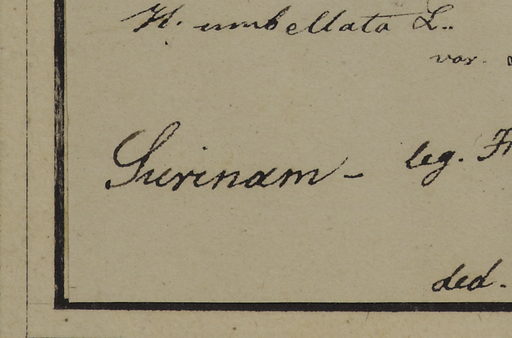 H. umbellata L..
var.
Surinam - leg.
ded.